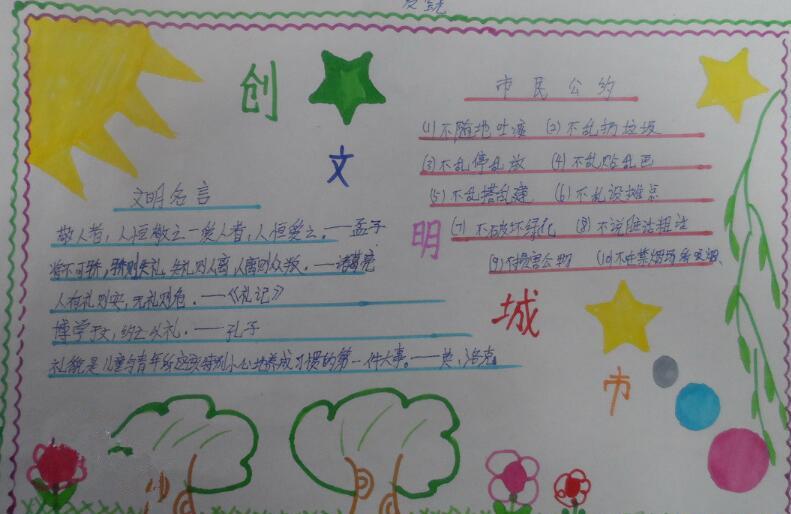 创
文
明
城
市
文明名言
敬人者,人恒敬之 爱人者,人恒爱之。——孟子
将不可骄,骄则失礼,失礼则人离,人离则众叛。——诸葛亮
人有礼则安,无礼则危。——《礼记》
博学于文,约之以礼。——孔子
礼貌是儿童与青年所应该特别小心地养成习惯的第一件大事。——英、洛克
市民公约
(1)不随地吐痰 (2)不乱扔垃圾
(3)不乱停乱放 (4)不乱贴乱画
(5)不乱搭乱建 (6)不乱设摊点
(7)不破坏绿化 (8)不说脏话粗话
(9)不损害公物 (10)不在禁烟场所吸烟